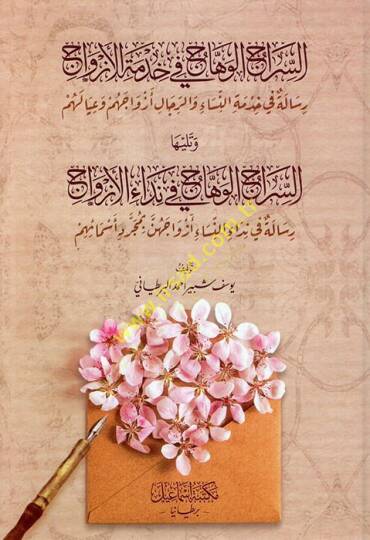 السراج الوهاج في خدمة الأزواج
رسالة في خدمة النساء والرجال أزواجهم وعيالهم
وتليها
السراج الوهاج في نداء الأزواج
رسالة في نداء النساء أزواجهن بمجرد أسمائهم
تأليف
يوسف شبير أحمد البريطاني
مكتبة إسماعيل
- بريطانيا -